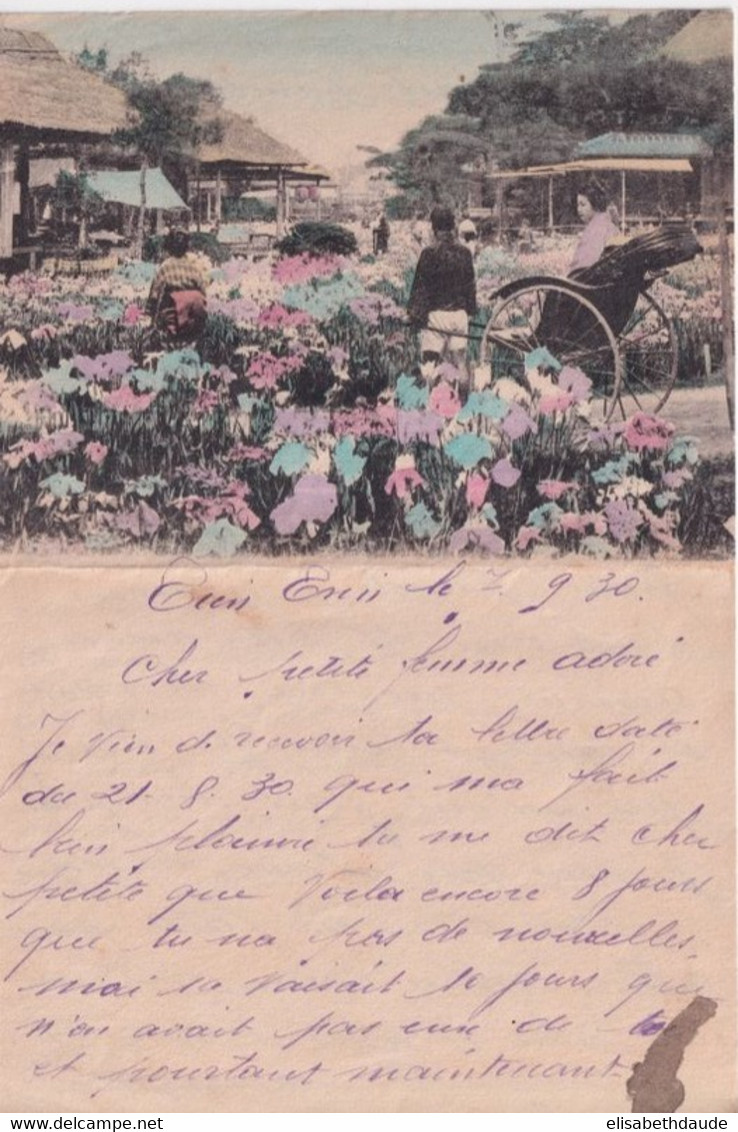 le 7. 9 30.
Cher petite femme adoré
Je vien de recevoir ta lettre daté
du 21. 8. 30. qui ma fait
bien plaisire tu me dit cher
petite que Voila encore 8 jours
que tu na pas de nouvelles,
moi sa faisait 10 jours que
n'en avait pas eue de
et pourtant maintenant
elisabethdaude